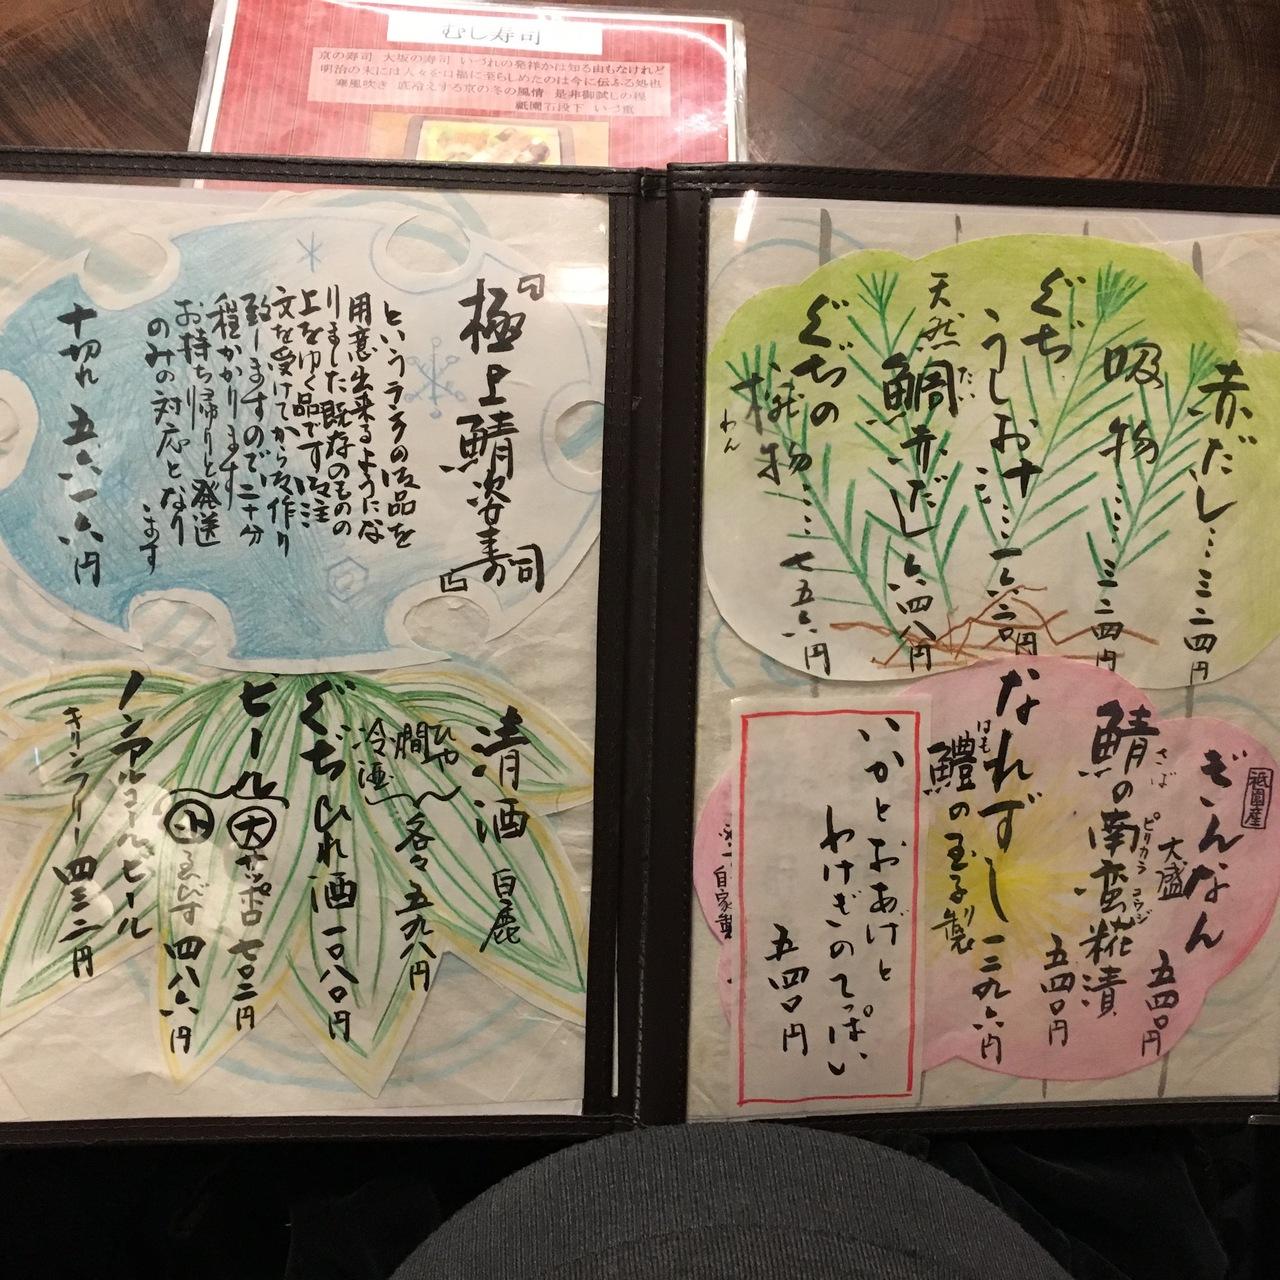 むし寿司
京の寿司 大坂の寿司 いづれの発祥かは知る由もなけれど
明治の末には人々を口福に至らしめたのは今に伝ふる処也
寒風吹き 底冷えする京の冬の風情 是非御試しの程
祇園石段下 いづ重
赤だし…三二四円
吸物……三二四円
ぐぢ
うしお汁…一六二〇円
天然鯛赤だし 六四八円
たい
ぐぢの
椀物……七五六円
わん
祇園産
ぎんなん
大盛 五四〇円
さば ピリカラ コウジ
鯖の南蛮糀漬
五四〇円
なれずし 一二九六円
はも
鱧の玉子製
いかとおあげと
わけぎのてっぱい
五四〇円
自家製
『極上鯖姿寿司』
というランクの御品を
用意出来るようにな
りました 既存のものの
上をゆく品です 御注
文を受けてから御作り
致しますので二十分
程かかります
お持ち帰りと発送
のみの対応となり
ます
十切れ 五六一六円
清酒 白鹿
ひや
燗
冷酒
各々 五九八円
ぐぢひれ酒 一〇八〇円
ビール
大 サッポロ 七〇二円
小 ゑびす 四八六円
ノンアルコールビール
キリンフリー 四三二円